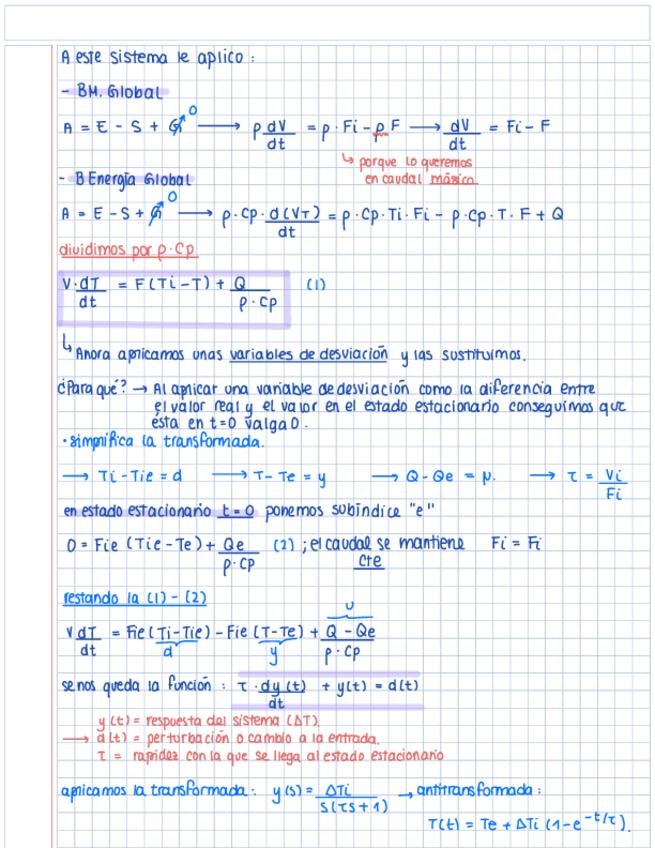 A este sistema le aplico :
- BM. Global
A = E - S + G↗0 ⟶ ρ dV/dt = ρ · Fi - ρ F ⟶ dV/dt = Fi - F
↳ porque lo queremos
en caudal másico
- B Energía Global
A = E - S + G↗0 ⟶ ρ · Cp · d(VT)/dt = ρ · Cp · Ti · Fi - ρ · Cp · T · F + Q
dividimos por ρ · Cp
V · dT/dt = F (Ti - T) + Q/ρ · Cp (1)
↳ Ahora aplicamos unas variables de desviación y las sustituimos.
¿Para qué? → Al aplicar una variable de desviación como la diferencia entre
el valor real y el valor en el estado estacionario conseguimos que
esta en t=0 valga 0.
· simplifica la transformada.
⟶ Ti - Tie = d ⟶ T - Te = y ⟶ Q - Qe = μ. ⟶ τ = Vi/Fi
en estado estacionario t = 0 ponemos subíndice "e"
0 = Fie (Tie - Te) + Qe/ρ · Cp (2) ; el caudal se mantiene Fi = Fi
cte
restando la (1) - (2)
u
V dT/dt = Fie (Ti - Tie) - Fie (T - Te) + Q - Qe/ρ · Cp
d y
se nos queda la función : τ · dy(t)/dt + y(t) = d(t)
y(t) = respuesta del sistema (ΔT)
⟶ d(t) = perturbación o cambio a la entrada.
τ = rapidez con la que se llega al estado estacionario
aplicamos la transformada : y(s) = ΔTi/s(τs + 1) → antitransformada :
T(t) = Te + ΔTi (1 - e^-t/τ).